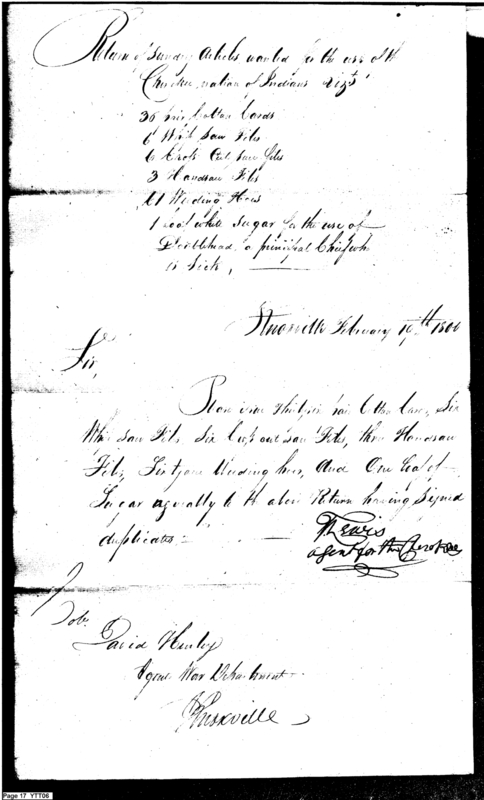 Return of Sundry Articles wanted for the use of the
Cherokee nation of Indians Vizt
36 pair Cotton Cards
6 Whip Saw Files
6 Cross Cut saw files
3 Handsaw Files
Weeding Hoes
1 Loaf white Sugar for the use of
Doublehead a principal Chief who
is Sick,
Knoxville February 19th 1800
Sir,
pair Cotton Cards, Six
Whip saw Files, Six Cross cut saw Files, three Handsaw
Files, Weeding hoes, And One Loaf of
Sugar agreeably to the above Return having Signed
duplicates
T Lewis
agent for the Cherokee
David Henley
Agent War Department
Knoxville
Page 17 YTT06